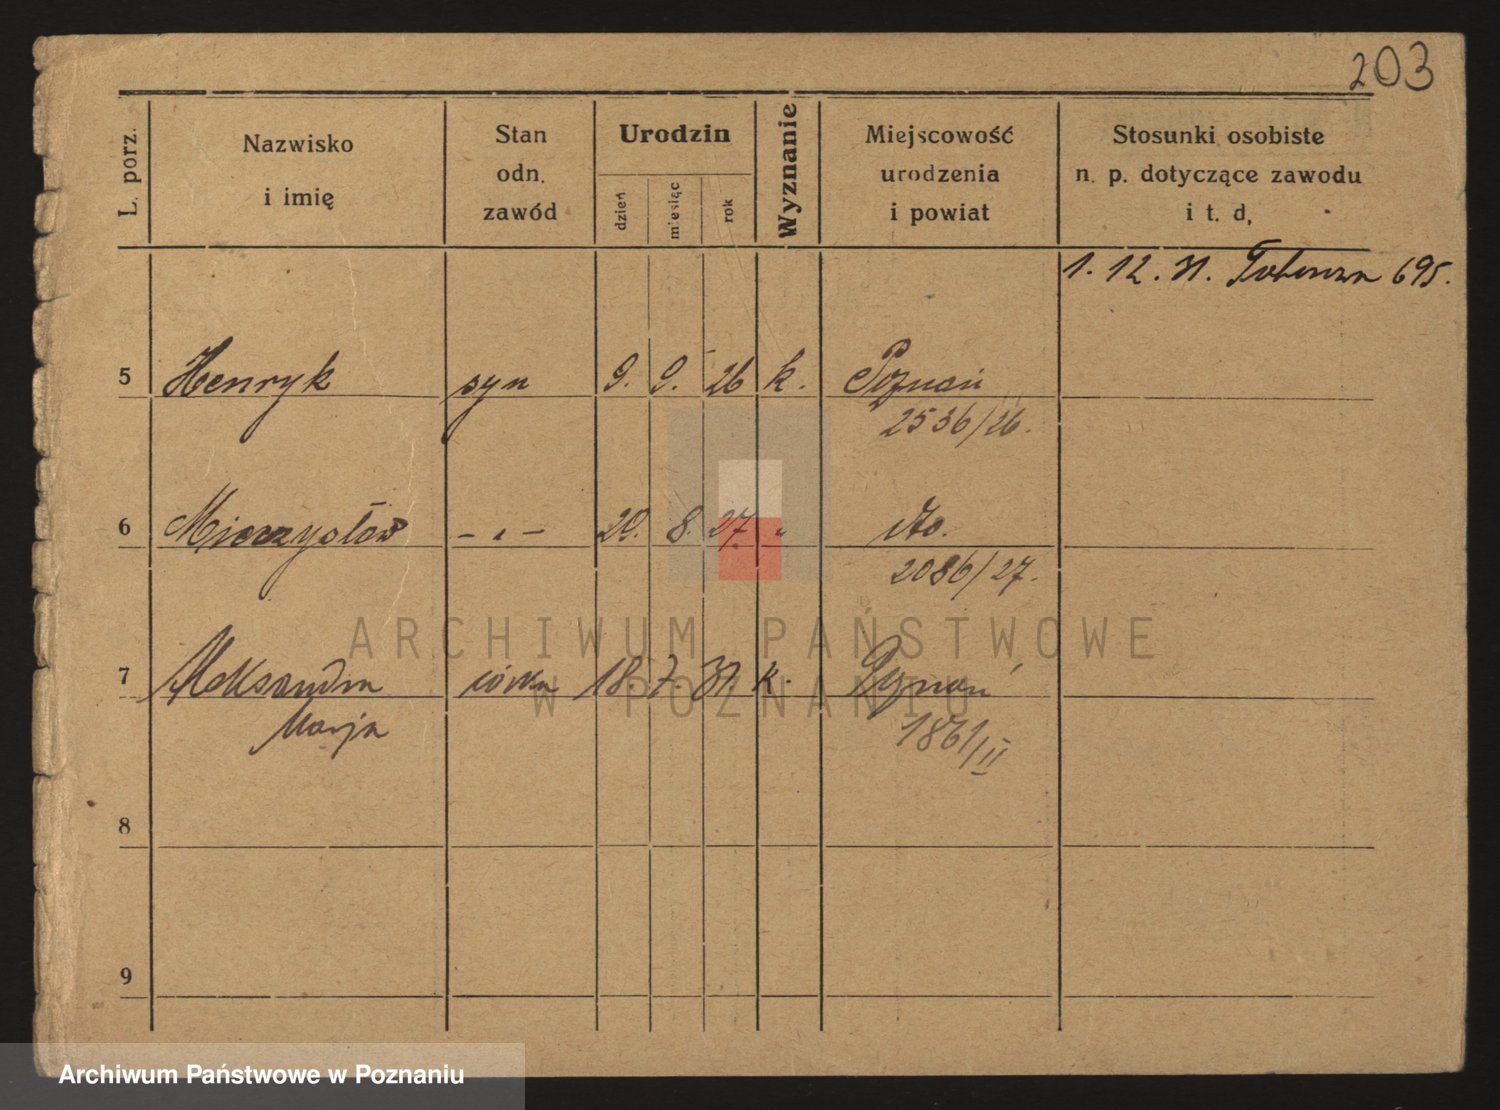 203
L. porz.
Nazwisko
i imię
Stan
odn.
zawód
Urodzin
dzień
miesiąc
rok
Wyznanie
Miejscowość
urodzenia
i powiat
Stosunki osobiste
n. p. dotyczące zawodu
i t. d.
1. 12. 31. 695.
5 Henryk syn 9. 9. 26 k. Poznań
2536/26.
6 Mieczysław - „ - 20. 8. 27. „ dto.
2086/27.
7 Aleksandra córka 18. 7. 31 k. Poznań
Marja 1861/II
8
9
ARCHIWUM PAŃSTWOWE
W POZNANIU
Archiwum Państwowe w Poznaniu